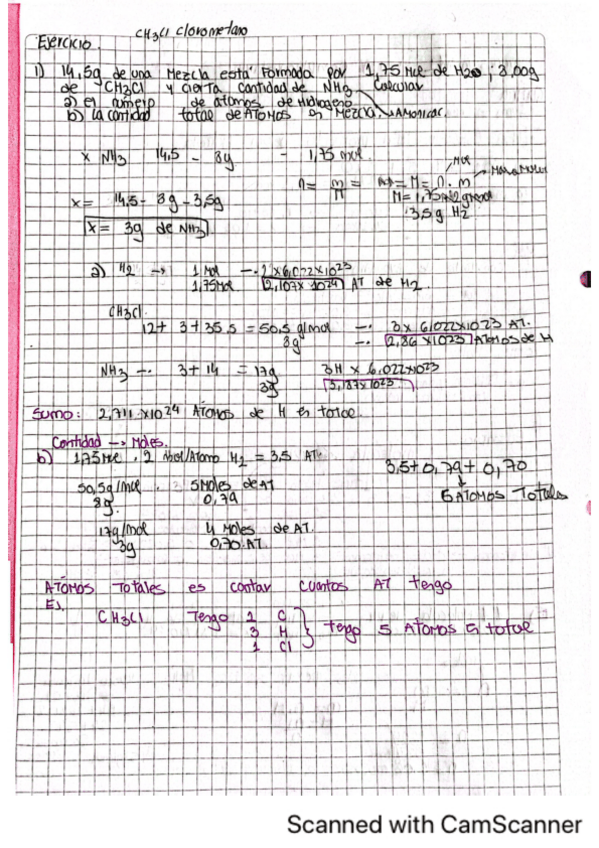 CH3Cl Clorometano
Ejercicio.
1) 14,5g de una Mezcla está Formada por 1,75 Mol de H2; 8,00g
de CH3Cl y cierta cantidad de NH3 Calcular
a) el número de átomos de Hidrogeno
b) La cantidad total de ATOMOS en Mezcla. Amoniac.
x NH3 14,5 - 8g - 1,75 mol
n = m/M = M = n . m
Mol
x = 14,5 - 8g - 3,5g
3,5g H2
x = 3g de NH3
a) H2 → 1 Mol —. 2 x 6,022 x 10^23
1,75 Mol 2,107 x 10^24 AT de H2
CH3Cl.
12 + 3 + 35,5 = 50,5 g/mol —. 3 x 6,022 x 10^23 AT.
8g —. 2,86 x 10^23 Atomos de H
NH3 —. 3 + 14 = 17g 3H x 6,022 x 10^23
3g 3,187 x 10^23
Sumo: 2,711 x 10^24 Atomos de H en total.
Cantidad → Moles.
b) 1,75 Mol . 2 H2 = 3,5 AT.
3,5 + 0,79 + 0,70
50,5g/mol . 5 Moles de AT
8g. 0,79
5 ATOMOS Totales
17g/mol 4 Moles de AT.
3g 0,70 AT.
ATOMOS Totales es contar cuantos AT tengo
EJ.
CH3Cl Tengo 1 C
3 H } tengo 5 ATOMOS en total
1 Cl
Scanned with CamScanner